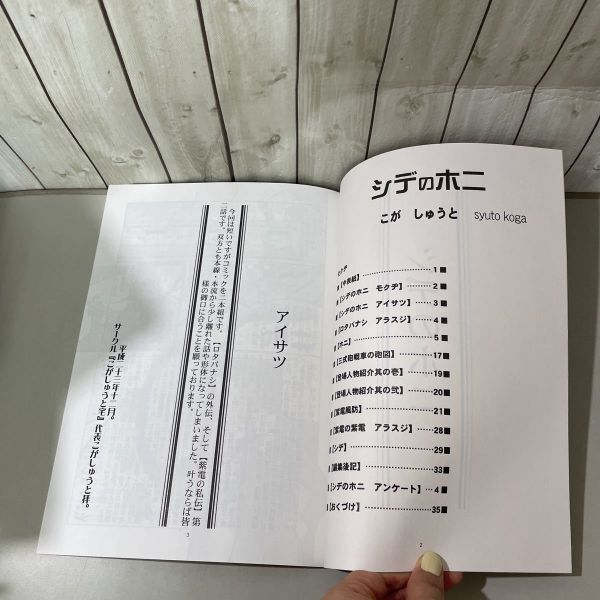 シデのホニ
こが　しゅうと　syuto koga
モクヂ
■【中表紙】 1■
■【シデのホニ　モクヂ】 2■
■【シデのホニ　アイサツ】 3■
■【ロタバナシ　アラスジ】 4■
■【ホニ】 5■
■【三式砲戦車の砲図】 17■
■【登場人物紹介其の壱】 19■
■【登場人物紹介其の弐】 20■
■【紫電風防】 21■
■【紫電の紫電　アラスジ】 28■
■【シデ】 29■
■【編集後記】 33■
■【シデのホニ　アンケート】 4■
■【おくづけ】 35■
2
アイサツ
今回は短いですがコミックを二本紙です。【ロタバナシ】の外伝、そして【紫電の私伝】第
二話です。双方とも本線・本流から少し離れた話や形体になってしまいました。叶うならば皆
様の御口に合うことを願っております。
平成二十二年十二月。
サークル『こがしゅうと宅』代表こがしゅうと拝。
3